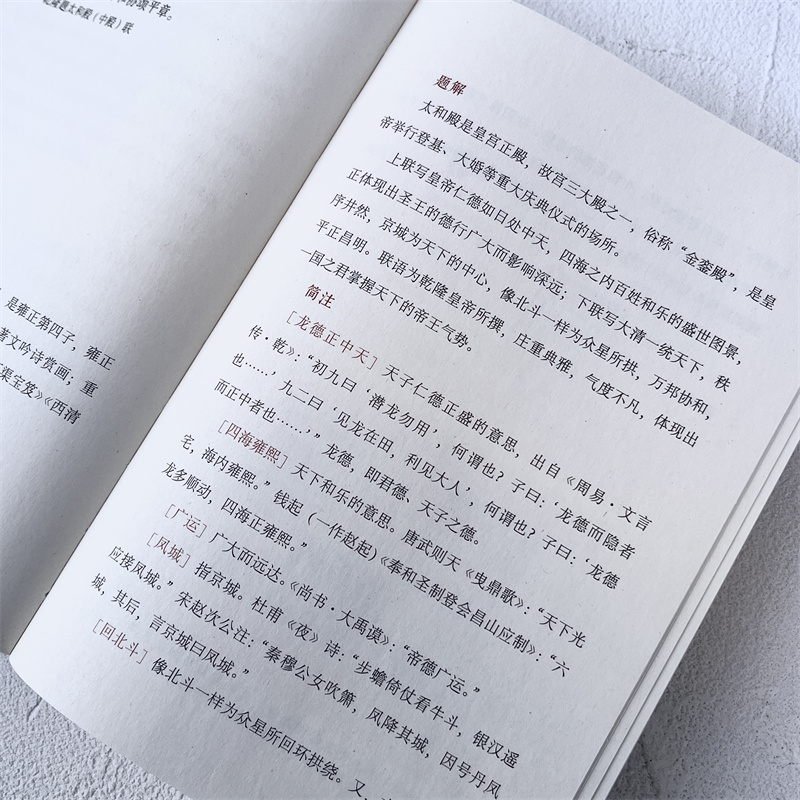 协坝平章。
乾隆题太和殿（中殿）联
，是雍正第四子，雍正
著文吟诗赏画；重
渠宝笈》《西清
题解
太和殿是皇宫正殿，故宫三大殿之一，俗称“金銮殿”，是皇
帝举行登基、大婚等重大庆典仪式的场所。
上联写皇帝仁德如日处中天，四海之内百姓和乐的盛世图景，
正体现出圣王的德行广大而影响深远；下联写大清一统天下，秩
序井然，京城为天下的中心，像北斗一样为众星所拱，万邦协和，
平正昌明。联语为乾隆皇帝所撰，庄重典雅，气度不凡，体现出
一国之君掌握天下的帝王气势。
简注
［龙德正中天］天子仁德正盛的意思，出自《周易·文言
传·乾》：“初九曰‘潜龙勿用’，何谓也？子曰：‘龙德而隐者
也……，九二曰‘见龙在田，利见大人’，何谓也？子曰：‘龙德
而正中者也……，”龙德，即君德、天子之德。
［四海雍熙］天下和乐的意思。唐武则天《曳鼎歌》：“天下光
宅，海内雍熙。”钱起（一作赵起）《奉和圣制登会昌山应制》：“六
龙多顺动，四海正雍熙。”
［广运］广大而远达。《尚书·大禹谟》：“帝德广运。”
［凤城］指京城。杜甫《夜》诗：“步蟾倚仗看牛斗，银汉遥
应接凤城。”朱赵次公注：“秦穆公女吹箫，凤降其城，因号丹凤
城，其后，言京城曰凤城。”
［回北斗］像北斗一样为众星所回环拱绕。又，